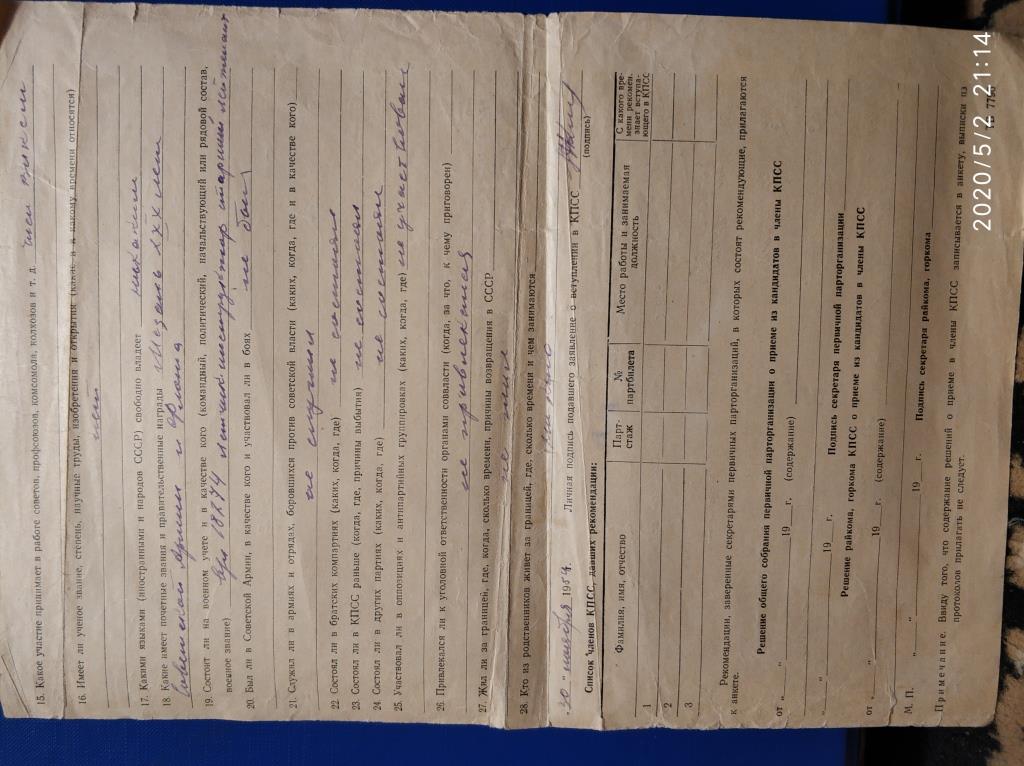 15. Какое участие принимает в работе советов, профсоюзов, комсомола, колхозов и т. д. член
16. Имеет ли ученое звание, степень, научные труды, изобретения и открытия (какие и к какому времени относятся)
нет
17. Какими языками (иностранными и народов СССР) свободно владеет никакими
18. Какие имеет почетные звания и правительственные награды Медаль XXX лет
Советской Армии и Флота
19. Состоит ли на военном учете и в качестве кого (командный, политический, начальствующий или рядовой состав,
военное звание) старший лейтенант
20. Был ли в Советской Армии, в качестве кого и участвовал ли в боях не был
21. Служил ли в армиях и отрядах, боровшихся против советской власти (каких, когда, где и в качестве кого)
не служил
22. Состоял ли в братских компартиях (каких, когда, где) не состоял
23. Состоял ли в КПСС раньше (когда, где, причины выбытия) не состоял
24. Состоял ли в других партиях (каких, когда, где) не состоял
25. Участвовал ли в оппозициях и антипартийных группировках (каких, когда, где) не участвовал
26. Привлекался ли к уголовной ответственности органами соввласти (когда, за что, к чему приговорен)
не привлекался
27. Жил ли за границей, где, когда, сколько времени, причины возвращения в СССР
не жил
28. Кто из родственников живет за границей, где, сколько времени и чем занимаются
„30“ ноября 1954. Личная подпись подавшего заявление о вступлении в КПСС
(подпись)
Список членов КПСС, давших рекомендации:
Фамилия, имя, отчество Парт- стаж № партбилета Место работы и занимаемая должность С какого вре- мени рекомен. знает вступа- ющего в КПСС
1
2
3
Рекомендации, заверенные секретарями первичных парторганизаций, в которых состоят рекомендующие, прилагаются
к анкете.
Решение общего собрания первичной парторганизации о приеме из кандидатов в члены КПСС
от „ “ 19 г. (содержание)
„ “ 19 г. Подпись секретаря первичной парторганизации
Решение райкома, горкома КПСС о приеме из кандидатов в члены КПСС
от „ “ 19 г. (содержание)
М. П. „ “ 19 г. Подпись секретаря райкома, горкома
Примечание. Ввиду того, что содержание решений о приеме в члены КПСС записывается в анкету, выписки из
протоколов прилагать не следует.
2020/5/2 21:14